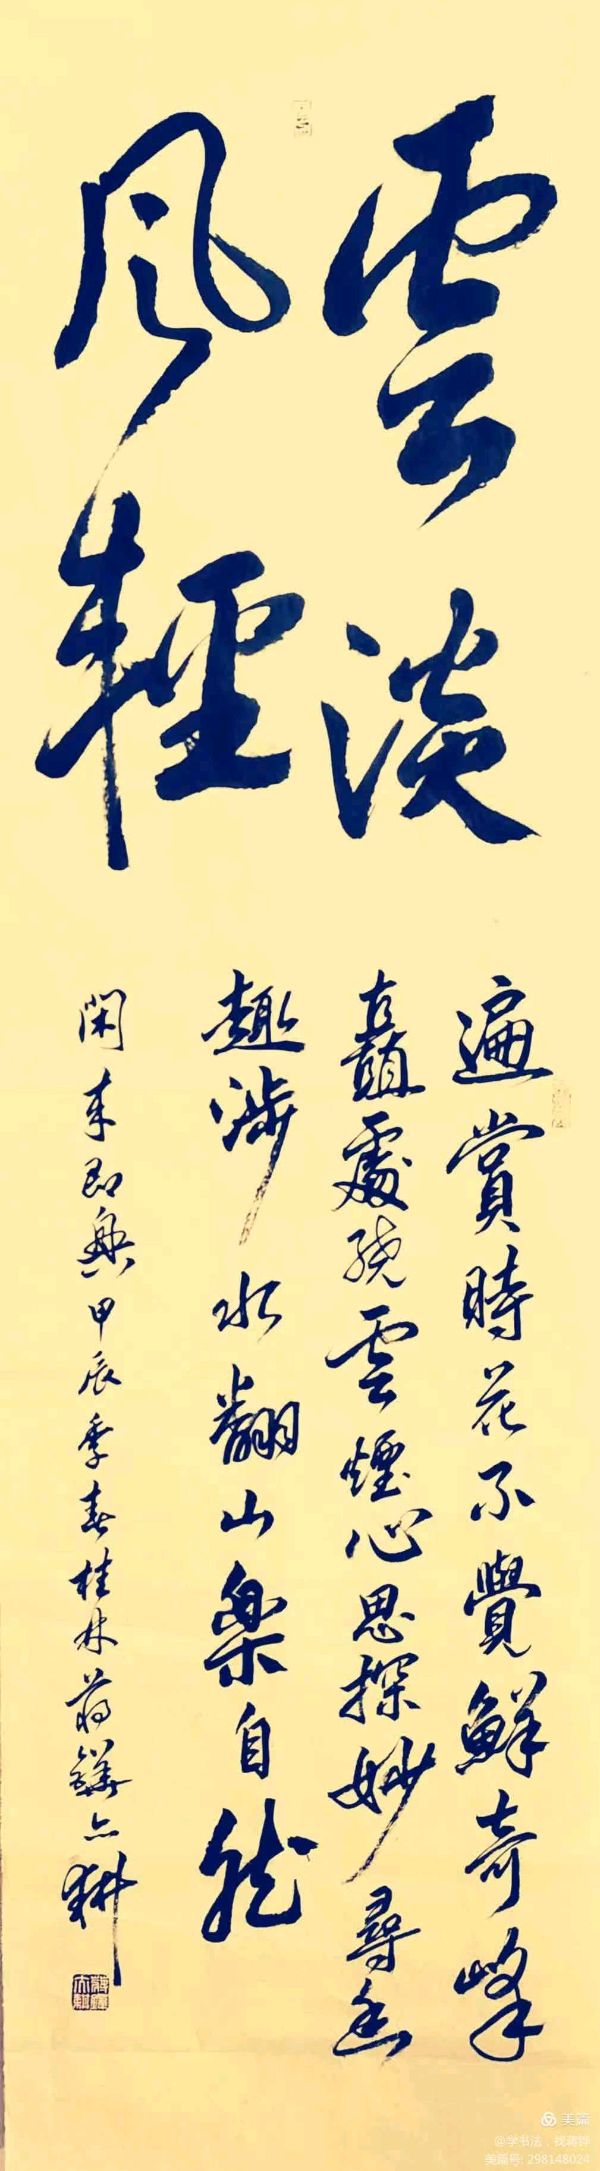 雲淡
風輕
遍賞時花不覺鮮奇峰
矗處繞雲煙心思探妙尋幽
趣涉水翻山樂自然
閑來即興甲辰季春桂林蔣鏵亦耕
美篇
@学书法，找蒋铧
美篇号: 298148024